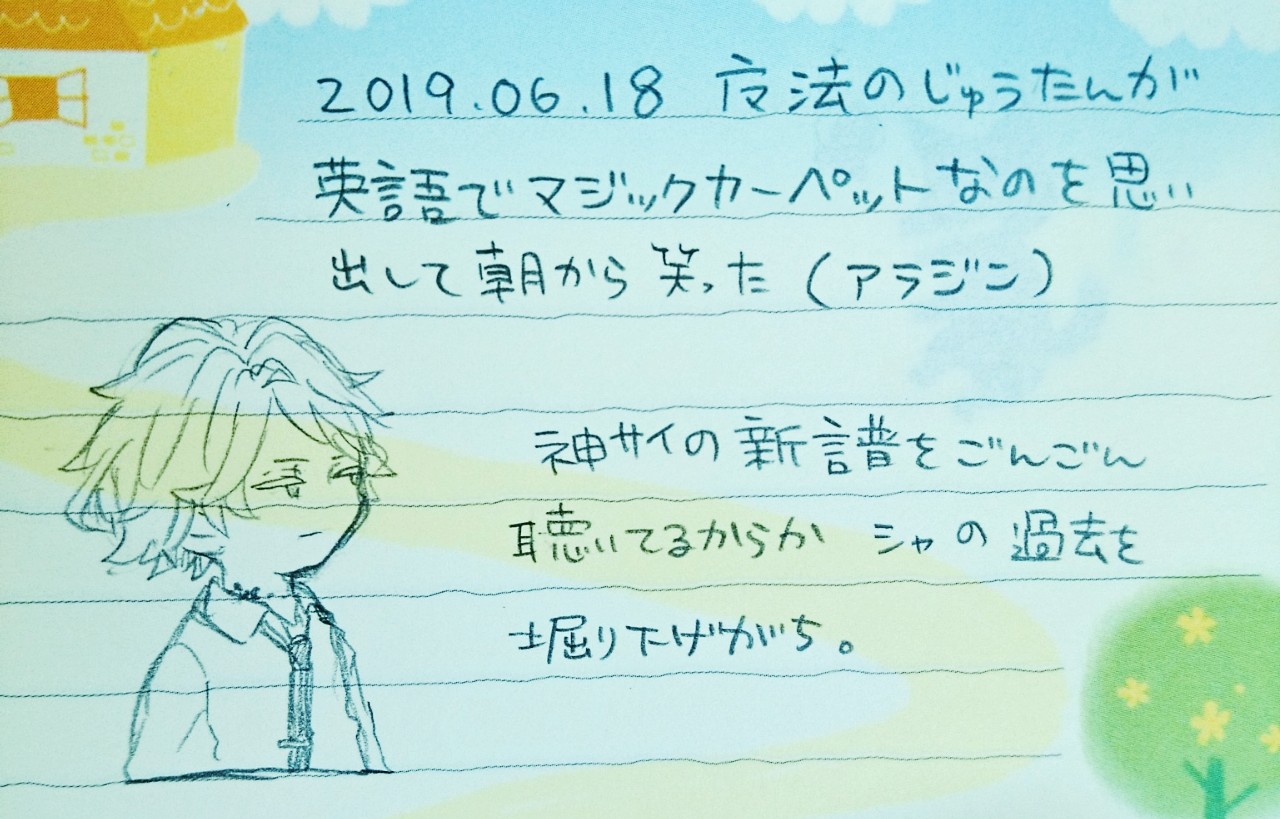 2019.06.18 魔法のじゅうたんが
英語でマジックカーペットなのを思い
出して朝から笑った(アラジン)
神サイの新譜をごんごん
聴いてるからか シャの過去を
掘り下げがち。